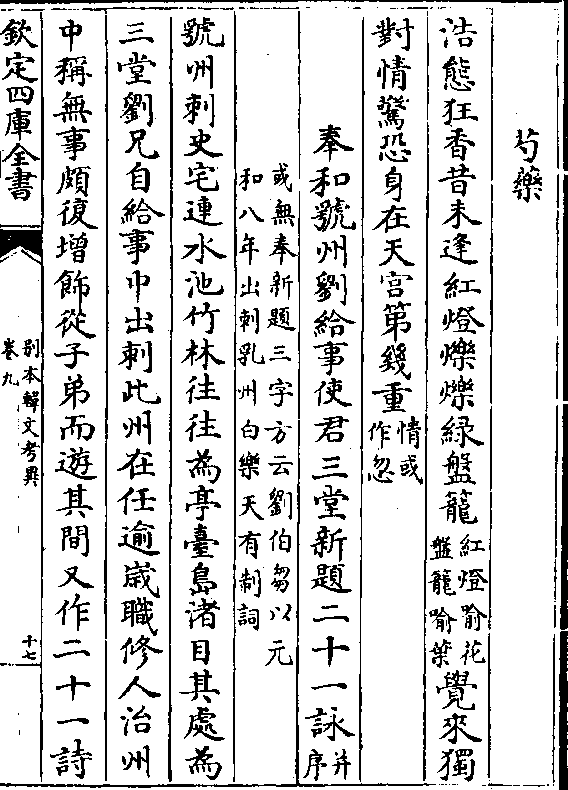 芍藥
浩態狂香昔未逢紅燈爍爍綠盤籠紅燈喻花盤籠喻葉覺來獨
對情驚恐身在天宮第幾重情或作忽
奉和虢州劉給事使君三堂新題二十一詠并序
或無奉新題三字方云劉伯芻以元
和八年出刺虢州白樂天有制詞
虢州刺史宅連水池竹林往往為亭臺島渚目其處為
三堂劉兄自給事中出刺此州在任逾歲職修人治州
中稱無事頗復增飾從子弟而遊其間又作二十一詩
欽定四庫全書
別本韓文考異
卷九
十七